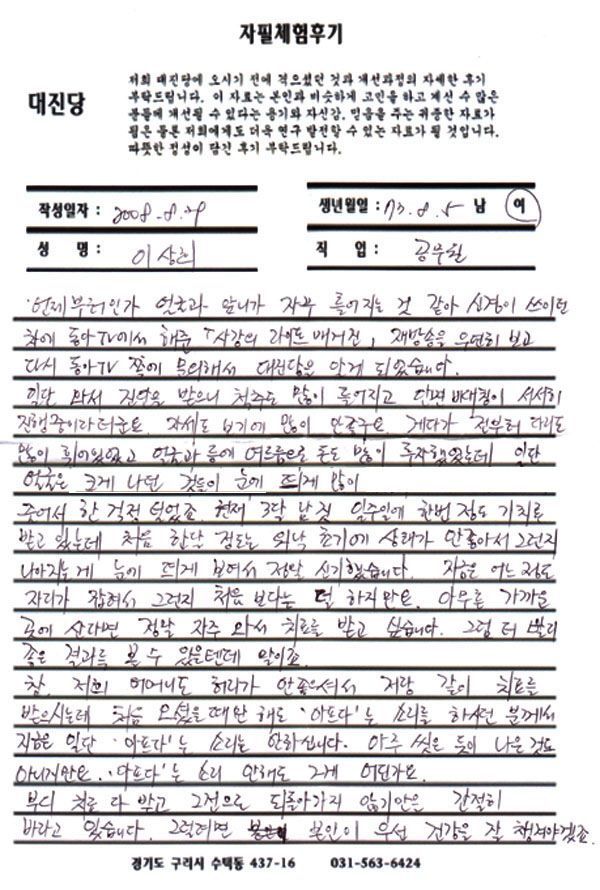 자필체험후기
대진당
저희 대진당에 오시기 전에 격으셨던 것과 개선과정의 자세한 후기
부탁드립니다. 이 자료는 본인과 비슷하게 고민을 하고 계신 수 많은
분들께 개선될 수 있다는 용기와 자신감, 믿음을 주는 귀중한 자료가
됨은 물론 저희에게도 더욱 연구 발전할 수 있는 자료가 될 것입니다.
따뜻한 정성이 담긴 후기 부탁드립니다.
작성일자 : 2008. 8. 29
생년월일 : 73. 8. 5 남 여
성 명 : 이상희
직 업 : 공무원
언제부터인가 얼굴과 앞니가 자꾸 틀어지는 것 같아 신경이 쓰이던
차에 동아TV에서 해준 「사강의 라이프 매거진」 재방송을 우연히 보고
다시 동아TV 쪽에 문의해서 대진당을 알게 되었습니다.
일단 와서 진단을 받으니 척추도 많이 틀어지고 안면비대칭이 서서히
진행중이라더군요. 자세도 보기에 많이 안좋구요. 게다가 전부터 다리도
많이 휘어있었고 얼굴과 등에 여드름으로 돈도 많이 투자했었는데 일단
얼굴은 크게 나던 것들이 눈에 띄게 많이
줄어서 한 걱정 덜었죠. 현재 3달 남짓 일주일에 한번 정도 치료
받고 있는데 처음 한달 정도는 워낙 초기에 상태가 안좋아서 그런지
나아지는게 눈에 띄게 보여서 정말 신기했습니다. 지금은 어느 정도
자리가 잡혀서 그런지 처음 보다는 덜 하지만요. 아무튼 가까운
곳에 산다면 정말 자주 와서 치료를 받고 싶습니다. 그럼 더 빨리
좋은 결과를 볼 수 있을텐데 말이죠.
참, 저희 어머니도 허리가 안좋으셔서 저랑 같이 치료를
받으시는데 처음 오셨을때만 해도 '아프다'는 소리를 하시던 분께서
지금은 일단 '아프다'는 소리는 안하십니다. 아주 씻은 듯이 나은 것은
아니지만요. '아프다'는 소리 안해도 그게 어딘가요.
부디 치료 다 받고 그전으로 되돌아가지 않기만을 간절히
바라고 있습니다. 그럴려면 본인이 우선 건강을 잘 챙겨야겠죠.
경기도 구리시 수택동 437-16 031-563-6424